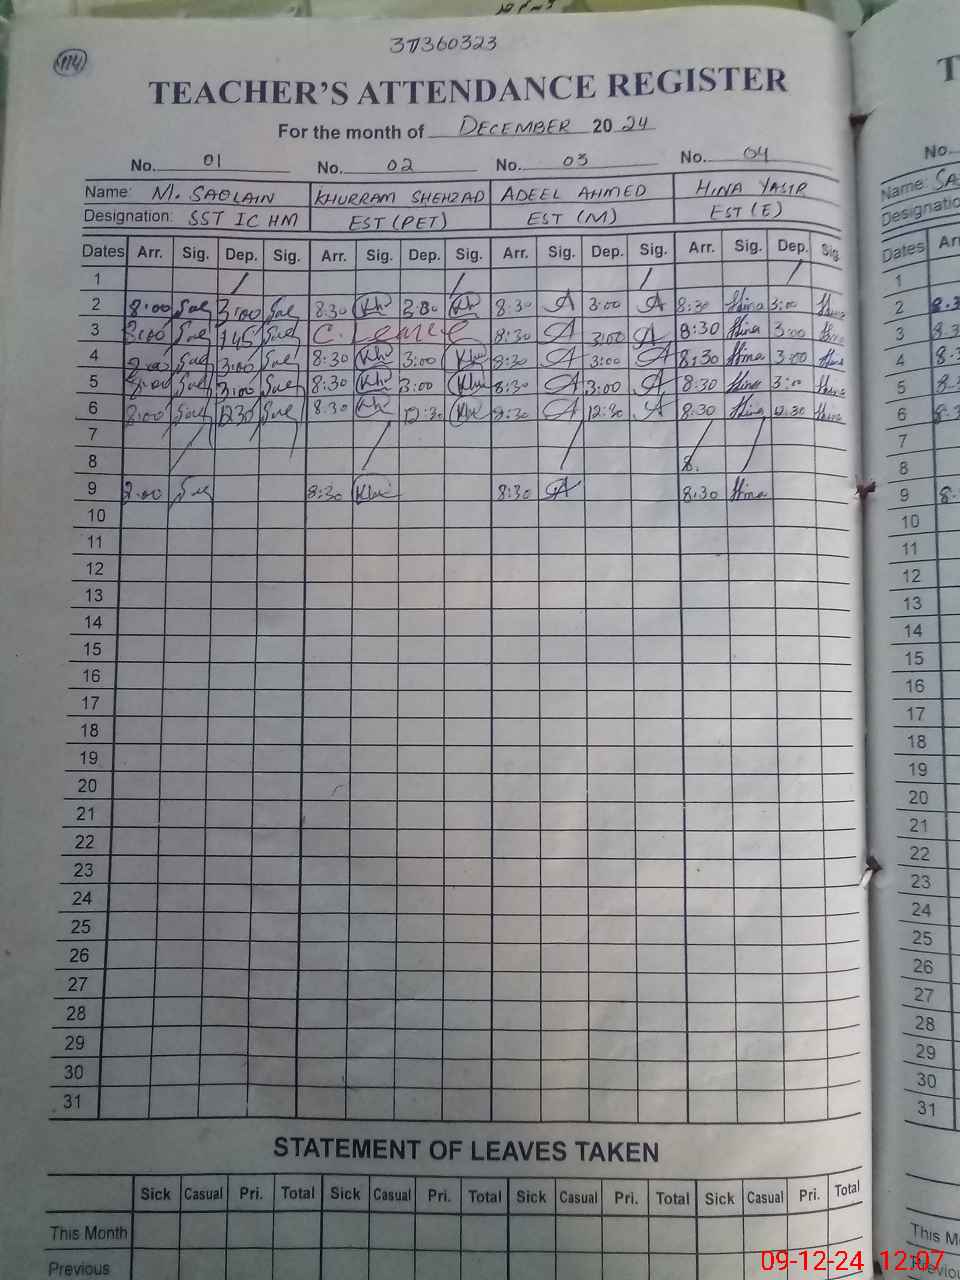 37360323
114
TEACHER'S ATTENDANCE REGISTER
For the month of DECEMBER 2024
No. 01 No. 02 No. 03 No. 04
Name: M. SAQLAIN KHURRAM SHEHZAD ADEEL AHMED HINA YASIR
Designation: SST IC HM EST (PET) EST (M) EST (E)
Dates Arr. Sig. Dep. Sig. Arr. Sig. Dep. Sig. Arr. Sig. Dep. Sig. Arr. Sig. Dep. Sig.
1
2 8:00 Saq 3:00 Saq 8:30 Khu 3:30 Khu 8:30 A 3:00 A 8:30 Hina 3:00 Hina
3 8:00 Saq 145 Saq C. Leave 8:30 A 3:00 A 8:30 Hina 3:00 Hina
4 8:00 Saq 3:00 Saq 8:30 Khu 3:00 Khu 8:30 A 3:00 A 8:30 Hina 3:00 Hina
5 8:00 Saq 3:00 Saq 8:30 Khu 3:00 Khu 8:30 A 3:00 A 8:30 Hina 3:00 Hina
6 8:00 Saq 1230 Saq 8:30 Khu 12:30 Khu 8:30 A 12:30 A 8:30 Hina 12:30 Hina
7
8 8.
9 8:00 Saq 8:30 Khu 8:30 A 8:30 Hina
10
11
12
13
14
15
16
17
18
19
20
21
22
23
24
25
26
27
28
29
30
31
STATEMENT OF LEAVES TAKEN
Sick Casual Pri. Total Sick Casual Pri. Total Sick Casual Pri. Total Sick Casual Pri. Total
This Month
Previous
T
No.
Name: SA
Designatio
Dates Arr
1
2 8:3
3 8:3
4 8:
5 8:3
6 8:3
7
8
9 8:
10
11
12
13
14
15
16
17
18
19
20
21
22
23
24
25
26
27
28
29
30
31
This M
Previou
09-12-24 12:07